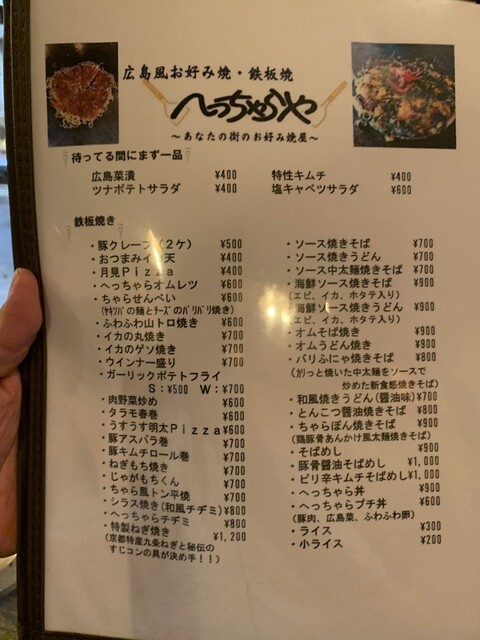 広島風お好み焼・鉄板焼
へっちゃらや
～あなたの街のお好み焼屋～
待ってる間にまず一品
広島菜漬 ¥400
ツナポテトサラダ ¥400
特性キムチ ¥400
塩キャベツサラダ ¥600
鉄板焼き
・豚クレープ（２ケ） ¥500
・おつまみイカ天 ¥400
・月見Ｐｉｚｚａ ¥400
・へっちゃらオムレツ ¥600
・ちゃらせんべい ¥600
（ヤキソバの麺とチーズのパリパリ焼き）
・ふわふわ山トロ焼き ¥600
・イカの丸焼き ¥700
・イカのゲソ焼き ¥700
・ウインナー盛り ¥700
・ガーリックポテトフライ
Ｓ：¥500 Ｗ：¥700
・肉野菜炒め ¥600
・タラモ春巻 ¥600
・うすうす明太Ｐｉｚｚａ ¥600
・豚アスパラ巻 ¥700
・豚キムチロール巻 ¥700
・ねぎもち焼き ¥700
・じゃがもちくん ¥700
・ちゃら風トン平焼 ¥700
・シラス焼き(和風チヂミ) ¥800
・へっちゃらチヂミ ¥800
・特製ねぎ焼き ¥1,200
（京都特産九条ねぎと秘伝の
すじコンの具が決め手！！）
・ソース焼きそば ¥700
・ソース焼きうどん ¥700
・ソース中太麺焼きそば ¥700
・海鮮ソース焼きそば ¥900
（エビ、イカ、ホタテ入り）
・海鮮ソース焼きうどん ¥900
（エビ、イカ、ホタテ入り）
・オムそば焼き ¥900
・オムうどん焼き ¥900
・パリふにゃ焼きそば ¥800
（ｶﾘｯと焼いた中太麺をソースで
炒めた新食感焼きそば）
・和風焼きうどん（醤油味） ¥700
・とんこつ醤油焼きそば ¥800
・ちゃらぽん焼きそば ¥900
（鶏豚骨あんかけ風太麺焼きそば）
・そばめし ¥900
・豚骨醤油そばめし ¥1,000
・ピリ辛キムチそばめし ¥1,000
・へっちゃら丼 ¥900
・へっちゃらプチ丼 ¥600
（豚肉、広島菜、ふわふわ卵）
・ライス ¥300
・小ライス ¥200